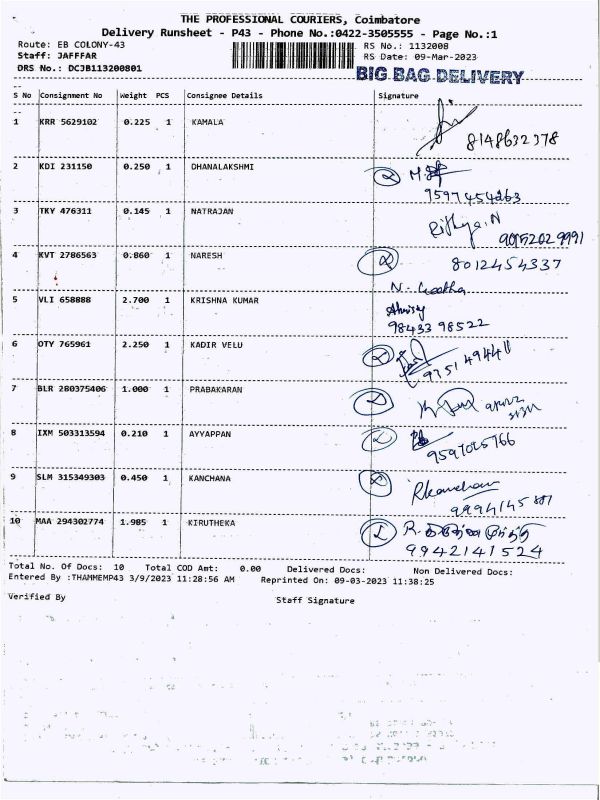 THE PROFESSIONAL COURIERS, Coimbatore
Delivery Runsheet - P43 - Phone No.:0422-3505555 - Page No.:1
Route: EB COLONY-43 RS No.: 1132008
Staff: JAFFFAR RS Date: 09-Mar-2023
DRS No.: DCJB113200801 BIG BAG DELIVERY
S No Consignment No Weight PCS Consignee Details Signature
1 KRR 5629102 0.225 1 KAMALA
8148632378
2 KDI 231150 0.250 1 DHANALAKSHMI
9597454263
3 TKY 476311 0.145 1 NATRAJAN
Rithya.N
4 KVT 2786563 0.860 1 NARESH 8012454337
5 VLI 658888 2.700 1 KRISHNA KUMAR
98433 98522
6 OTY 765961 2.250 1 KADIR VELU
7 BLR 280375406 1.000 1 PRABAKARAN
8 IXM 503313594 0.210 1 AYYAPPAN
9 SLM 315349303 0.450 1 KANCHANA
10 MAA 294302774 1.985 1 KIRUTHEKA
9942141524
Total No. Of Docs: 10 Total COD Amt: 0.00 Delivered Docs: Non Delivered Docs:
Entered By :THAMMEMP43 3/9/2023 11:28:56 AM Reprinted On: 09-03-2023 11:38:25
Verified By Staff Signature